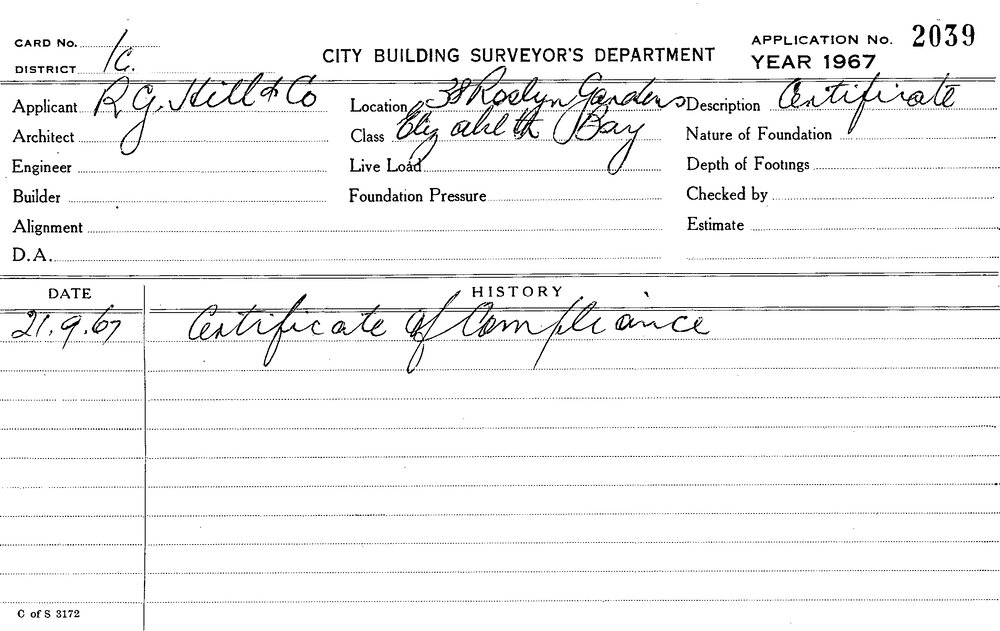 CARD No. 1c.
DISTRICT
CITY BUILDING SURVEYOR'S DEPARTMENT
APPLICATION No. 2039
YEAR 1967
Applicant R G. Hill & Co
Location 38 Roslyn Gardens
Description Certificate
Architect
Class Elizabeth Bay
Nature of Foundation
Engineer
Live Load
Depth of Footings
Builder
Foundation Pressure
Checked by
Alignment
Estimate
D.A.
DATE
HISTORY
21.9.67 Certificate of Compliance
C of S 3172